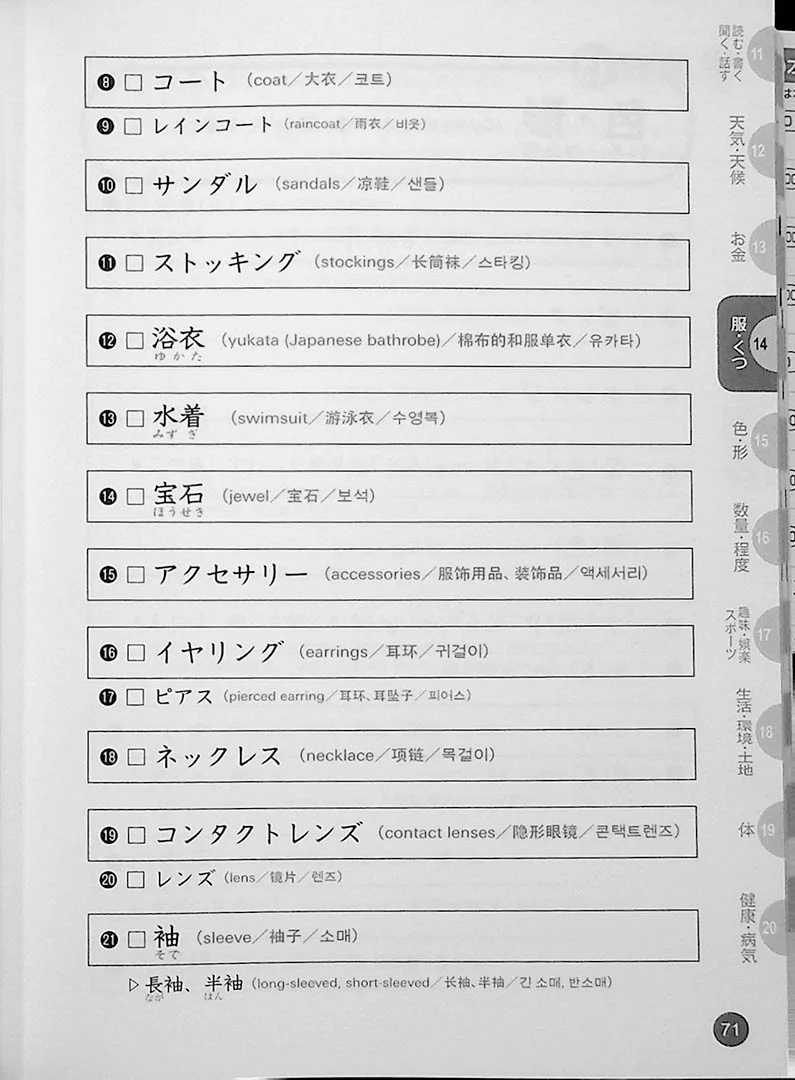 ❽ □ コート (coat／大衣／코트)
❾ □ レインコート (raincoat／雨衣／비옷)
❿ □ サンダル (sandals／凉鞋／샌들)
⓫ □ ストッキング (stockings／长筒袜／스타킹)
⓬ □ 浴衣 (yukata (Japanese bathrobe)／棉布的和服单衣／유카타)
ゆかた
⓭ □ 水着 (swimsuit／游泳衣／수영복)
みず ぎ
⓮ □ 宝石 (jewel／宝石／보석)
ほうせき
⓯ □ アクセサリー (accessories／服饰用品、装饰品／액세서리)
⓰ □ イヤリング (earrings／耳环／귀걸이)
⓱ □ ピアス (pierced earring／耳环、耳坠子／피어스)
⓲ □ ネックレス (necklace／项链／목걸이)
⓳ □ コンタクトレンズ (contact lenses／隐形眼镜／콘택트렌즈)
⓴ □ レンズ (lens／镜片／렌즈)
㉑ □ 袖 (sleeve／袖子／소매)
そで
▷ 長袖、半袖 (long-sleeved, short-sleeved／长袖、半袖／긴 소매, 반소매)
なが はん
読む・書く
聞く・話す
11
天気・天候
12
お金
13
服・くつ
14
色・形
15
数量・程度
16
趣味・娯楽
スポーツ
17
生活・環境・土地
18
体
19
健康・病気
20
71